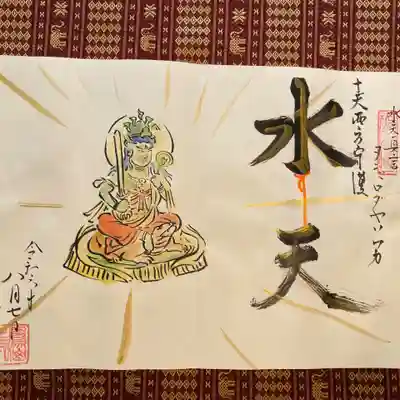 水天真言
十二天西方守護
水天
令和六年
八月七日